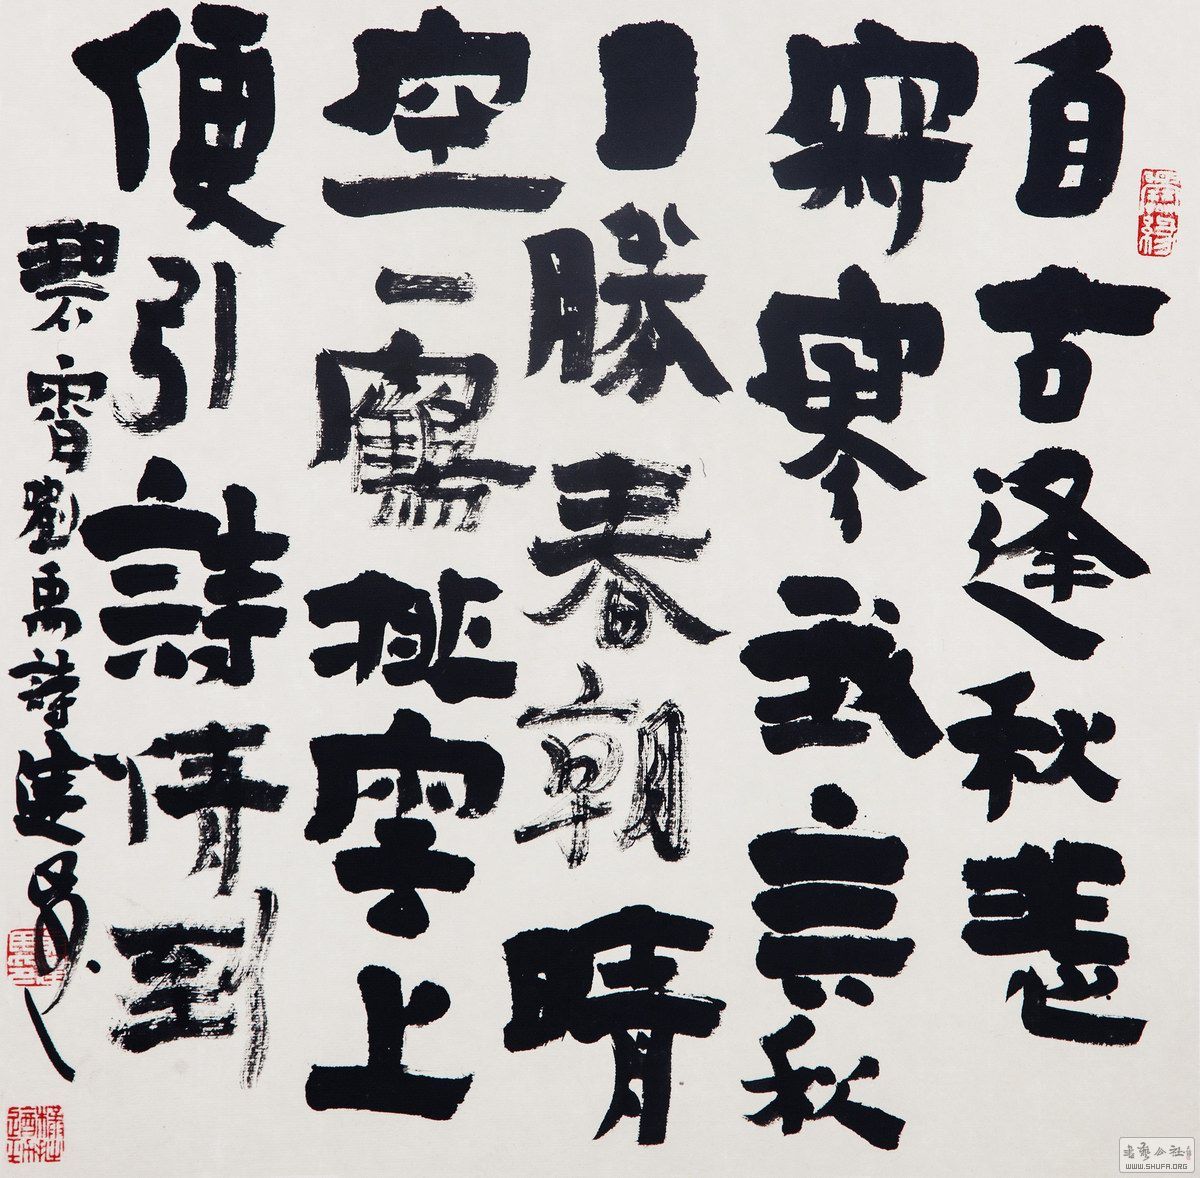 自古逢秋悲
寂寥我言秋
日勝春朝晴
空一鶴排雲上
便引詩情到
碧霄劉禹詩建
书艺公社
WWW.SHUFA.ORG